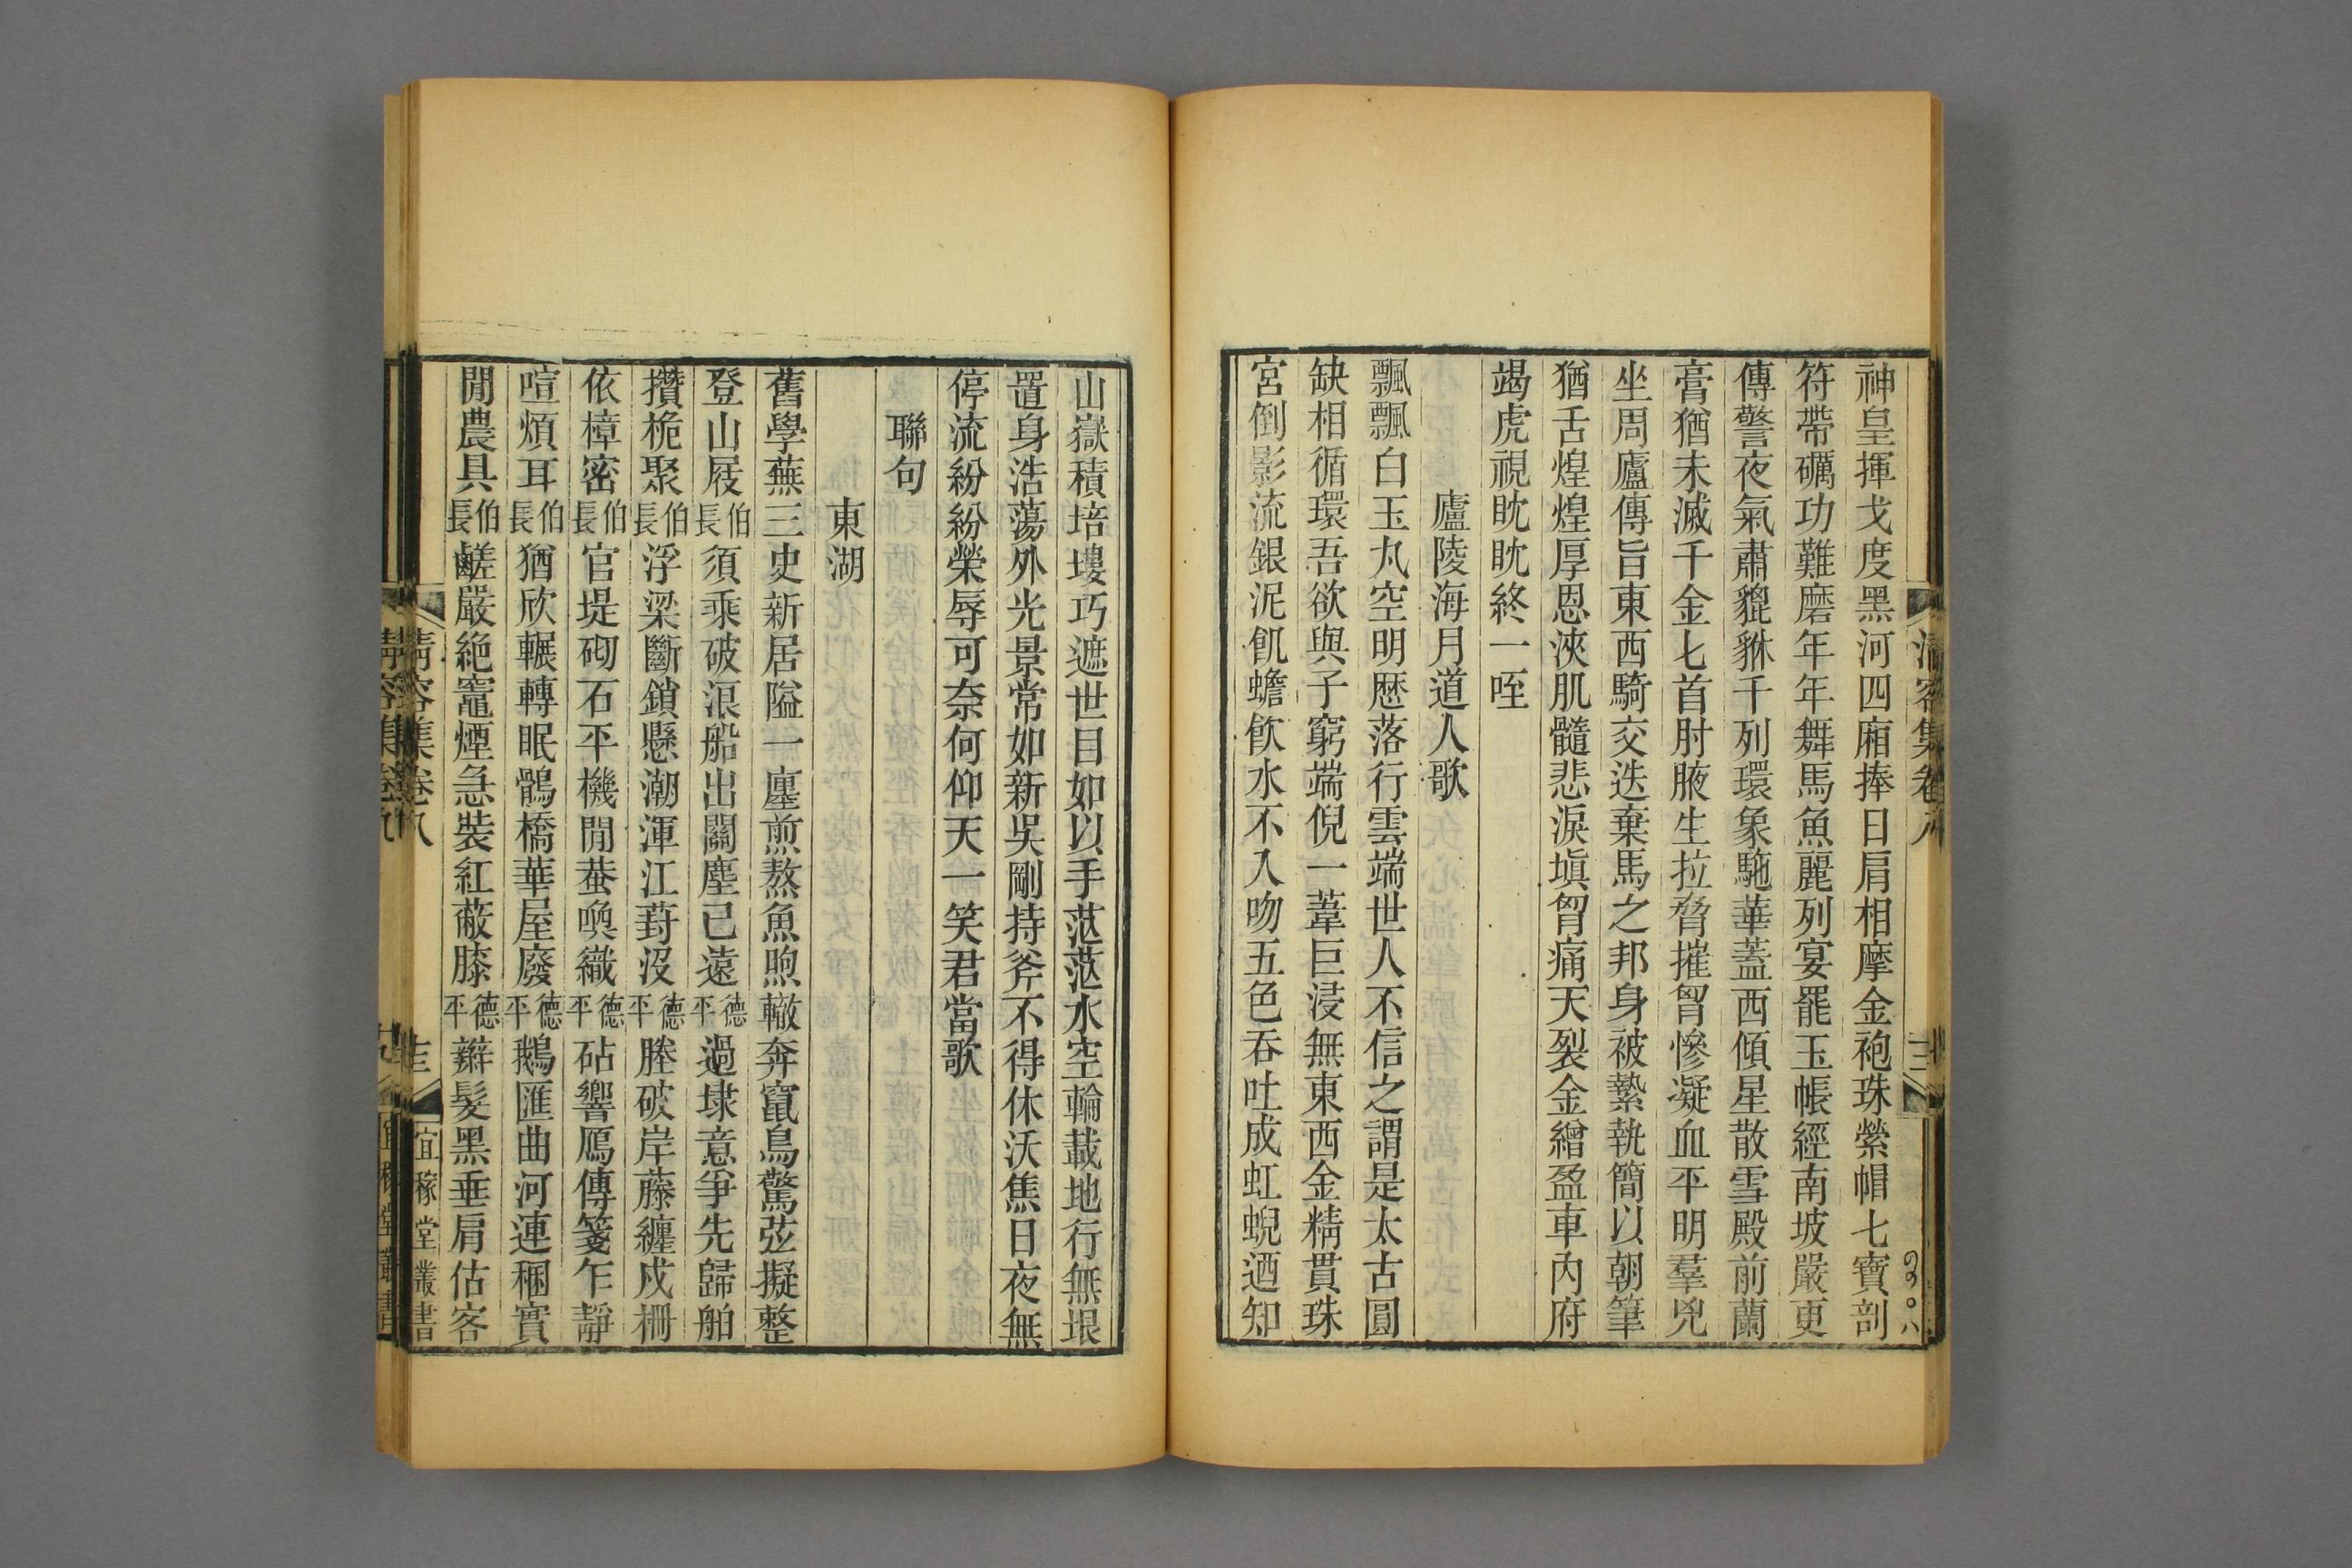 神皇揮戈度黑河四廂捧日肩相摩金袍珠縈帽七寶剖
符帶礪功難磨年年舞馬魚麗列宴罷玉帳經南坡嚴更
傳警夜氣肅貔貅千列環象駞華蓋西傾星散雪殿前蘭
膏猶未滅千金匕首肘腋生拉脅摧胷慘凝血平明羣兇
坐周廬傳旨東西騎交迭棄馬之邦身被縶執簡以朝筆
猶舌煌煌厚恩浹肌髓悲淚塡胷痛天裂金繒盈車內府
竭虎視眈眈終一咥
廬陵海月道人歌
飄飄白玉丸空明歷落行雲端世人不信之謂是太古圓
缺相循環吾欲與子窮端倪一葦巨浸無東西金精貫珠
宮倒影流銀泥飢蟾飮水不入吻五色吞吐成虹蜺迺知
山嶽積培塿巧遮世目如以手茫茫水空輪載地行無垠
置身浩蕩外光景常如新吳剛持斧不得休沃焦日夜無
停流紛紛榮辱可奈何仰天一笑君當歌
聯句
東湖
舊學蕪三史新居隘一廛煎熬魚煦轍奔竄鳥驚弦擬整
登山屐伯長須乘破浪船出關塵已遠德平過埭意爭先歸舶
攢桅聚伯長浮梁斷鎖懸潮渾江葑沒德平塍破岸藤纏戍柵
依樟密伯長官堤砌石平機閒蛬喚織德平砧響鴈傳箋乍靜
喧煩耳伯長猶欣輾轉眠鶻橋華屋廢德平鵝匯曲河連稇實
閒農具伯長鹺嚴絕竈煙急裝紅蔽膝德平辮髮黑垂肩估客
清容集卷八
宜稼堂叢書